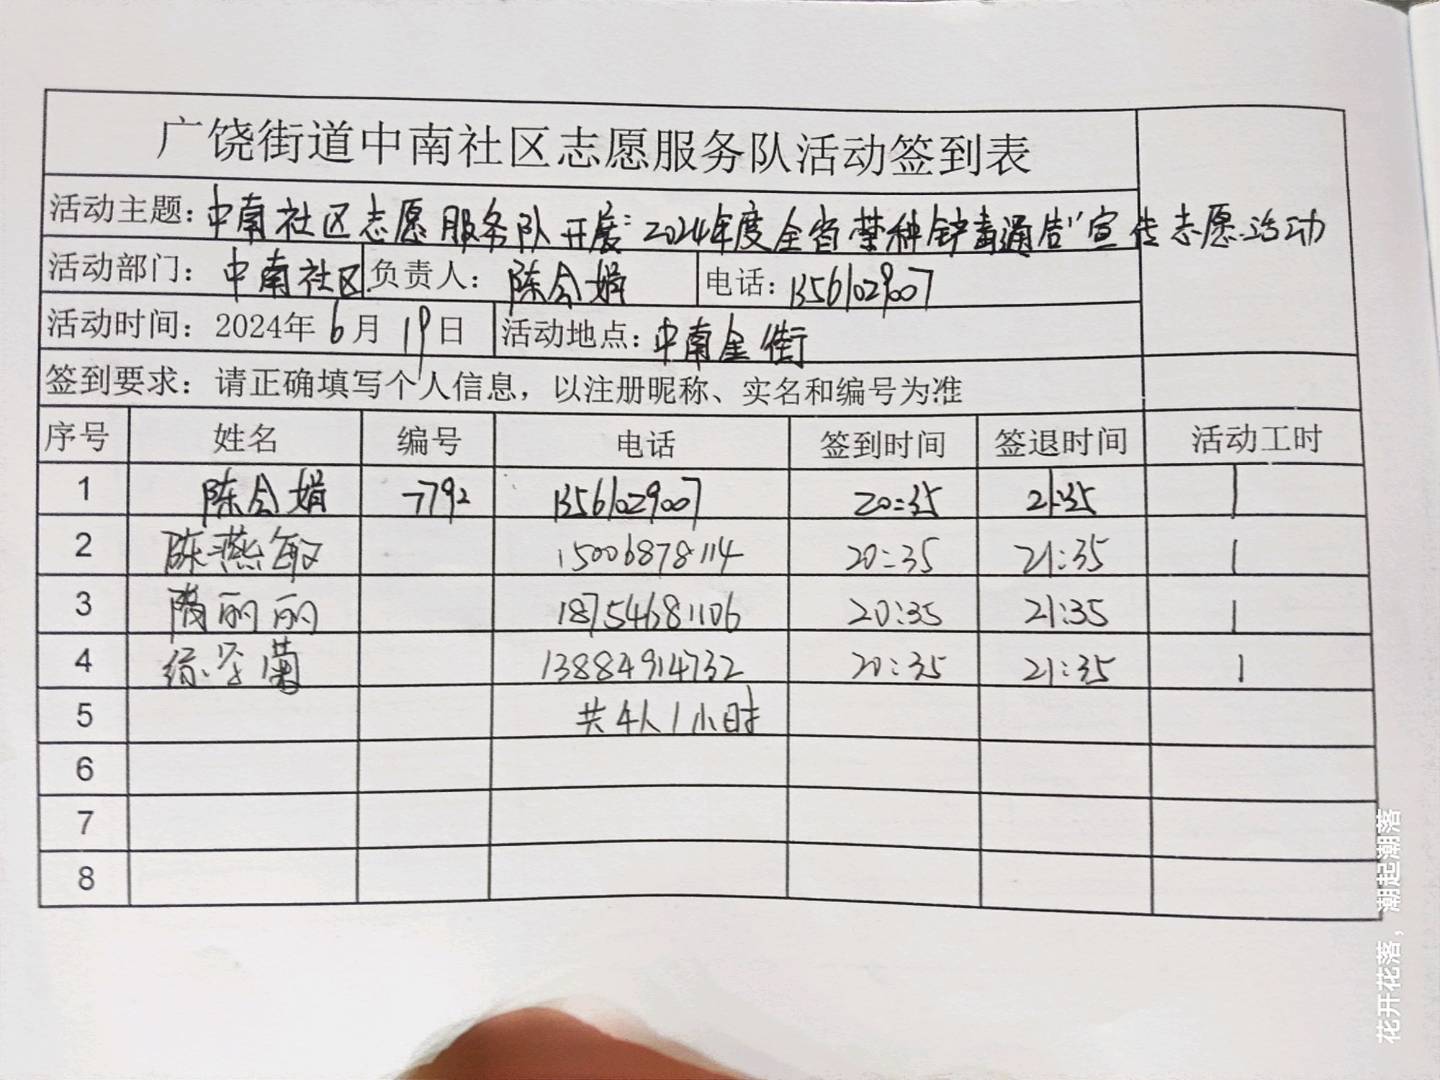 广饶街道中南社区志愿服务队活动签到表
活动主题：中南社区志愿服务队开展“2024年度全省禁种铲毒通告”宣传志愿活动
活动部门：中南社区 负责人：陈令娟 电话：13561029007
活动时间：2024年6月19日 活动地点：中南金街
签到要求：请正确填写个人信息，以注册昵称、实名和编号为准
序号 姓名 编号 电话 签到时间 签退时间 活动工时
1 陈令娟 7792 13561029007 20:35 21:35 1
2 陈燕敏 15006878114 20:35 21:35 1
3 隋丽丽 18754681106 20:35 21:35 1
4 13884914732 20:35 21:35 1
5 共4人1小时
6
7
8
花开花落，潮起潮落